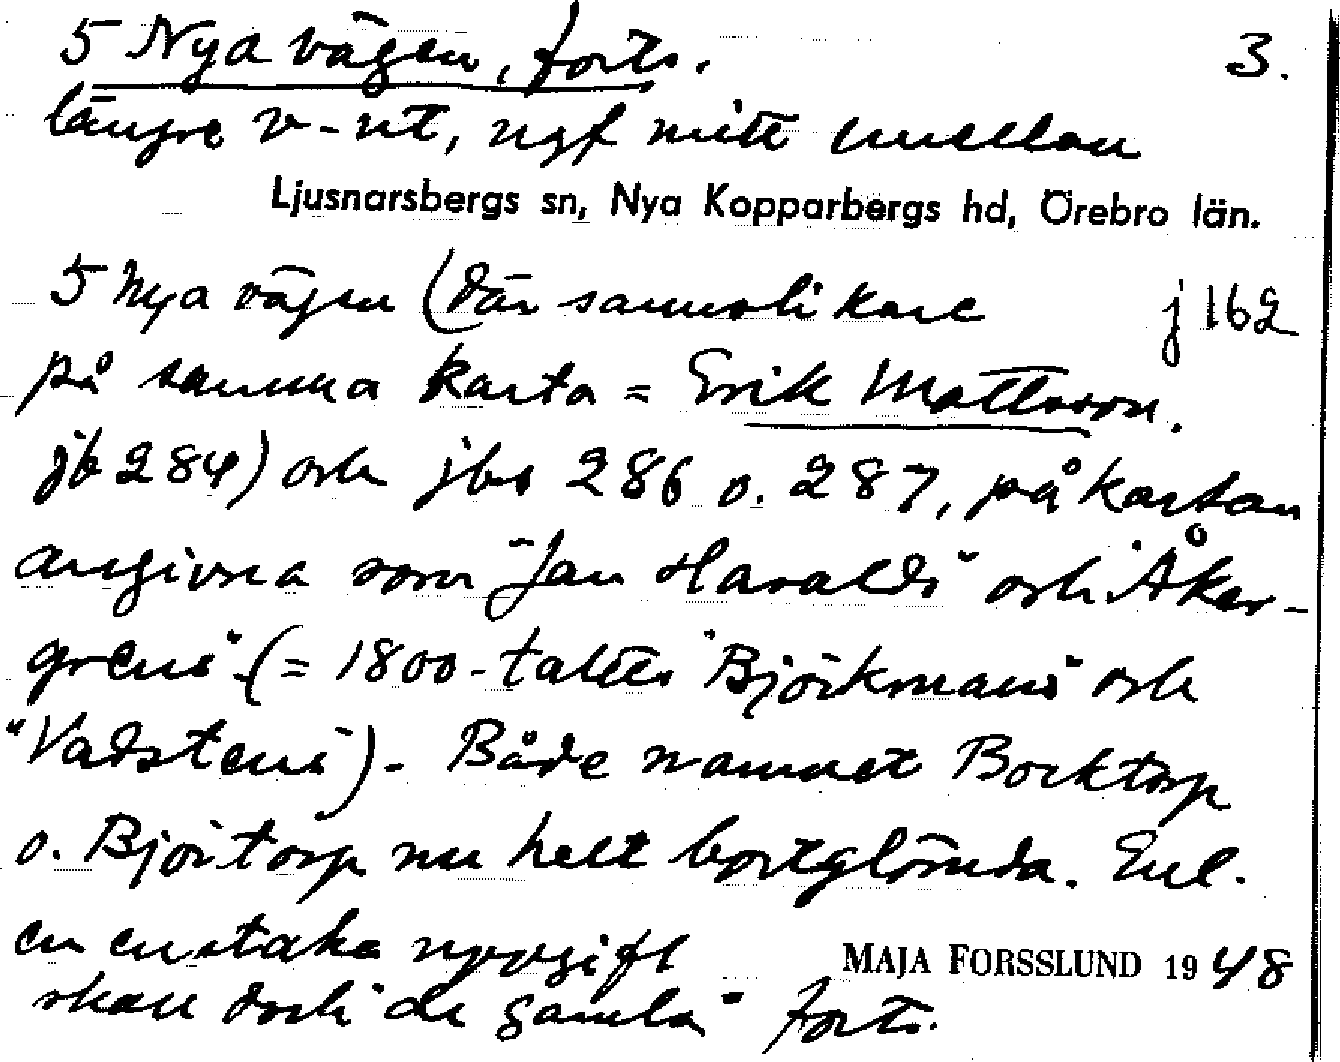 5 Nya vägen, forts. 3.
längre v-ut, ngf mitt emellan
Ljusnarsbergs sn, Nya Kopparbergs hd, Örebro län.
5 Nya vägen (där sannolikare j 162
på samma karta = Erik Mattsson.
jb 284) och jbs 286 o. 287, på kartan
angivna som "Jan Haralds" och "Åker-
grens". (= 1800-talets "Björkmans" och
"Vadstens"). Både namnet Bocktorp
o. Björtorp nu helt bortglömda. Enl.
en enstaka uppgift MAJA FORSSLUND 1948
skall dock "de gamla" forts.